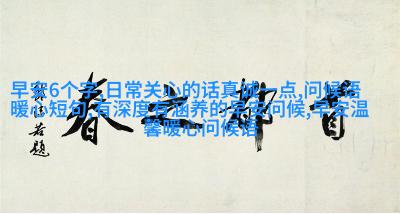 早安6个字,日常关心的话真诚一点,问候语
暖心短句,有深度有涵养的早安问候,早安温
馨暖心问候语
首都之春
沫若題